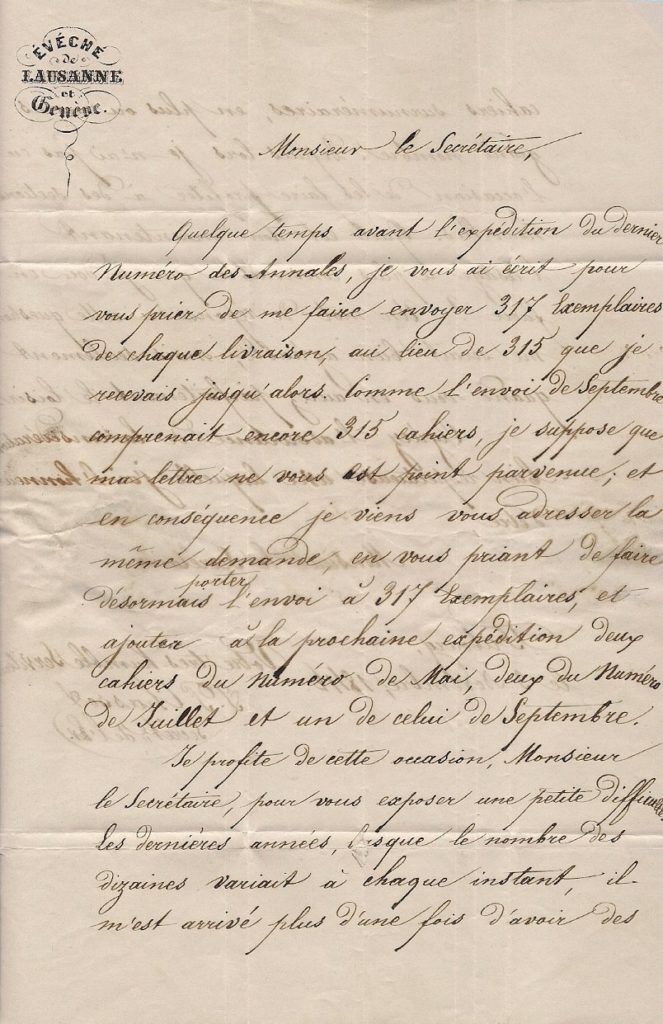 ÉVÊCHÉ
de
LAUSANNE
et
Genève.
Monsieur le Secrétaire,
Quelque temps avant l'expédition du dernier
Numéro des Annales, je vous ai écrit pour
vous prier de me faire envoyer 317 Exemplaires
de chaque livraison, au lieu de 315 que je
recevais jusqu'alors. Comme l'envoi de Septembre
comprenait encore 315 cahiers, je suppose que
ma lettre ne vous est point parvenue; et
en conséquence je viens vous adresser la
même demande, en vous priant de faire
porter
désormais l'envoi à 317 Exemplaires, et
ajouter à la prochaine expédition deux
cahiers du Numéro de Mai, deux du Numéro
de Juillet et un de celui de Septembre.
Je profite de cette occasion, Monsieur
le Secrétaire, pour vous exposer une petite difficulté.
Les dernières années, lorsque le nombre des
dizaines variait à chaque instant, il
m'est arrivé plus d'une fois d'avoir des